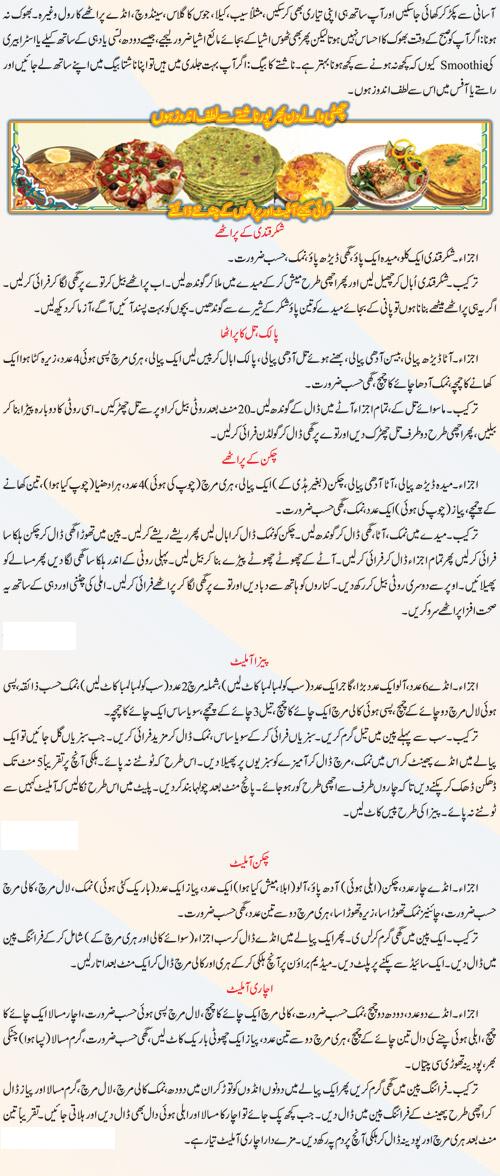 آسانی سے پکڑ کر کھائی جا سکیں اور آپ ساتھ ہی اپنی تیاری بھی کر سکیں، مثلاً سیب، کیلا، جوس کا گلاس، سینڈوچ، انڈے پراٹھے کا رول وغیرہ۔ بھوک نہ
ہونا: اگر آپ کو صبح کے وقت بھوک کا احساس نہیں ہوتا لیکن پھر بھی ٹھوس اشیا کے بجائے مائع اشیا ضرور لیجیے، جیسے دودھ، لسی یا دہی کے ساتھ کیلے یا اسٹرابیری
کی Smoothie کیوں کہ کچھ نہ ہونے سے کچھ ہونا بہتر ہے۔ ناشتے کا بیگ: اگر آپ بہت جلدی میں ہیں تو اپنا ناشتا بیگ میں اپنے ساتھ لے جائیں اور
راستے یا آفس میں اس سے لطف اندوز ہوں۔
چھٹی والے دن بھرپور ناشتے سے لطف اندوز ہوں
ٹرائی کیجیے آملیٹ اور پراٹھوں کے
شکر قندی کے پراٹھے
اجزاء۔ شکر قندی ایک کلو، میدہ ایک پاؤ، گھی ڈیڑھ پاؤ، نمک، حسب ضرورت۔
ترکیب۔ شکر قندی اُبال کر چھیل لیں اور پھر اچھی طرح میش کر کے میدے میں ملا کر گوندھ لیں۔ اب پراٹھے بیل کر توے پر گھی لگا کر فرائی کر لیں۔
اگر یہی پراٹھے میٹھے بنانا ہوں تو پانی کے بجائے میدے کو تین پاؤ شکر کے شیرے سے گوندھیں۔ بچوں کو بہت پسند آئیں گے، آزما کر دیکھ لیں۔
پالک، تل کا پراٹھا
اجزاء۔ آٹا ڈیڑھ پیالی، بیسن آدھی پیالی، بھنے ہوئے تل آدھی پیالی، پالک ابال کر پیس لیں ایک پیالی، ہری مرچ پسی ہوئی 4 عدد، زیرہ کٹا ہوا ایک
کھانے کا چمچہ، نمک آدھا چائے کا چمچ، گھی حسب ضرورت۔
ترکیب۔ ماسوائے تل کے، تمام اجزاء آٹے میں ڈال کے گوندھ لیں۔ 20 منٹ بعد روٹی بیل کر اوپر سے تل چھڑکیں۔ اسی روٹی کا دوبارہ پیڑا بنا کر
بیلیں، پھر اچھی طرح دو طرف تل چھڑک دیں اور توے پر گھی ڈال کر گولڈن فرائی کر لیں۔
چکن کے پراٹھے
اجزاء۔ میدہ ڈیڑھ پیالی، آٹا آدھی پیالی، چکن (بغیر ہڈی کے) ایک پیالی، ہری مرچ (چوپ کی ہوئی) 4 عدد، ہرا دھنیا (چوپ کیا ہوا)، تین کھانے
کے چمچے، پیاز (چوپ کی ہوئی) ایک عدد، نمک، گھی حسب ضرورت۔
ترکیب۔ میدے میں نمک، آٹا، گھی ڈال کر گوندھ لیں۔ چکن کو نمک ڈال کر ابال لیں پھر ریشے ریشے کر لیں۔ پین میں تھوڑا گھی ڈال کر چکن ہلکا سا
فرائی کر لیں پھر تمام اجزاء ڈال کر فرائی کر لیں۔ آٹے کے چھوٹے چھوٹے پیڑے بنا کر بیل لیں۔ پہلی روٹی کے اندر ہلکا سا گھی لگا دیں پھر مسالے کو
پھیلائیں۔ اوپر سے دوسری روٹی بیل کر رکھ دیں۔ کناروں کو ہاتھ سے دبا دیں اور توے پر گھی لگا کر پراٹھے فرائی کر لیں۔ املی کی چٹنی اور دہی کے ساتھ یہ
صحت افزا پراٹھے سرو کریں۔
پیزا آملیٹ
اجزاء۔ انڈے 6 عدد، آلو ایک عدد بڑا، گاجر ایک عدد (سب کو لمبا لمبا کاٹ لیں)، شملہ مرچ 2 عدد (سب کو لمبا لمبا کاٹ لیں)، نمک حسب ذائقہ، پسی
ہوئی لال مرچ دو چائے کے چمچ، پسی ہوئی کالی مرچ ایک چائے کا چمچ، تیل 3 چائے کے چمچے، سویا ساس ایک چائے کا چمچہ۔
ترکیب۔ سب سے پہلے پین میں تیل گرم کریں۔ سبزیاں فرائی کر کے سویا ساس، نمک ڈال کر مزید فرائی کریں۔ جب سبزیاں گل جائیں تو ایک
پیالے میں انڈے پھینٹ کر اس میں نمک، مرچ ڈال کر آمیزے کو سبزیوں پر پھیلا دیں۔ اس طرح کہ ٹوٹنے نہ پائے۔ ہلکی آنچ پر تقریباً 5 منٹ تک
ڈھکن ڈھک کر پکنے دیں تا کہ چاروں طرف سے اچھی طرح کور ہو جائے۔ پانچ منٹ بعد چولہا بند کر دیں۔ پلیٹ میں اس طرح نکالیں کہ آملیٹ کہیں سے
ٹوٹنے نہ پائے۔ پیزا کی طرح پیس کاٹ لیں۔
چکن آملیٹ
اجزاء۔ انڈے چار عدد، چکن (ابلی ہوئی) آدھ پاؤ، آلو (ابلا، میش کیا ہوا) ایک عدد، پیاز ایک عدد (باریک کٹی ہوئی) نمک، لال مرچ، کالی مرچ
حسب ضرورت، چائنیز نمک تھوڑا سا، زیرہ تھوڑا سا، ہری مرچ دو سے تین عدد، گھی حسب ضرورت۔
ترکیب۔ ایک پین میں گھی گرم کر لیں۔ پھر ایک پیالے میں انڈے ڈال کر سب اجزاء (سوائے کالی اور ہری مرچ کے) شامل کر کے فرائنگ پین
میں ڈال دیں۔ ایک سائیڈ سے پکنے پر پلٹ دیں۔ میڈیم براؤن پر آنچ ہلکی کر کے ہری اور کالی مرچ ڈال کر ایک منٹ بعد اتار لیں۔
اچاری آملیٹ
اجزاء۔ انڈے دو عدد، دودھ دو چمچ، نمک حسب ضرورت، کالی مرچ ایک چائے کا چمچ، لال مرچ پسی ہوئی حسب ضرورت، اچار مسالا ایک چائے کا
چمچ، ابلی ہوئی چنے کی دال تین چائے کے چمچ، ہری مرچ دو سے تین عدد، پیاز ایک چھوٹی باریک کاٹ لیں، گھی حسب ضرورت، گرم مسالا (پسا ہوا) چٹکی
بھر، پودینہ تھوڑی سی پتیاں۔
ترکیب۔ فرائنگ پین میں گھی گرم کریں پھر ایک پیالے میں دونوں انڈوں کو توڑ کر ان میں دودھ، نمک، کالی مرچ، لال مرچ، گرم مسالا اور پیاز ڈال
کر اچھی طرح پھینٹ کے فرائنگ پین میں ڈال دیں۔ جب کچھ پک جائے تو اچار کا مسالا اور ابلی ہوئی دال بھی ڈال دیں اور ہلاتی جائیں۔ تقریباً تین
منٹ بعد ہری مرچ اور پودینہ ڈال کر ہلکی آنچ پر دم پہ رکھ دیں۔ مزے دار اچاری آملیٹ تیار ہے۔